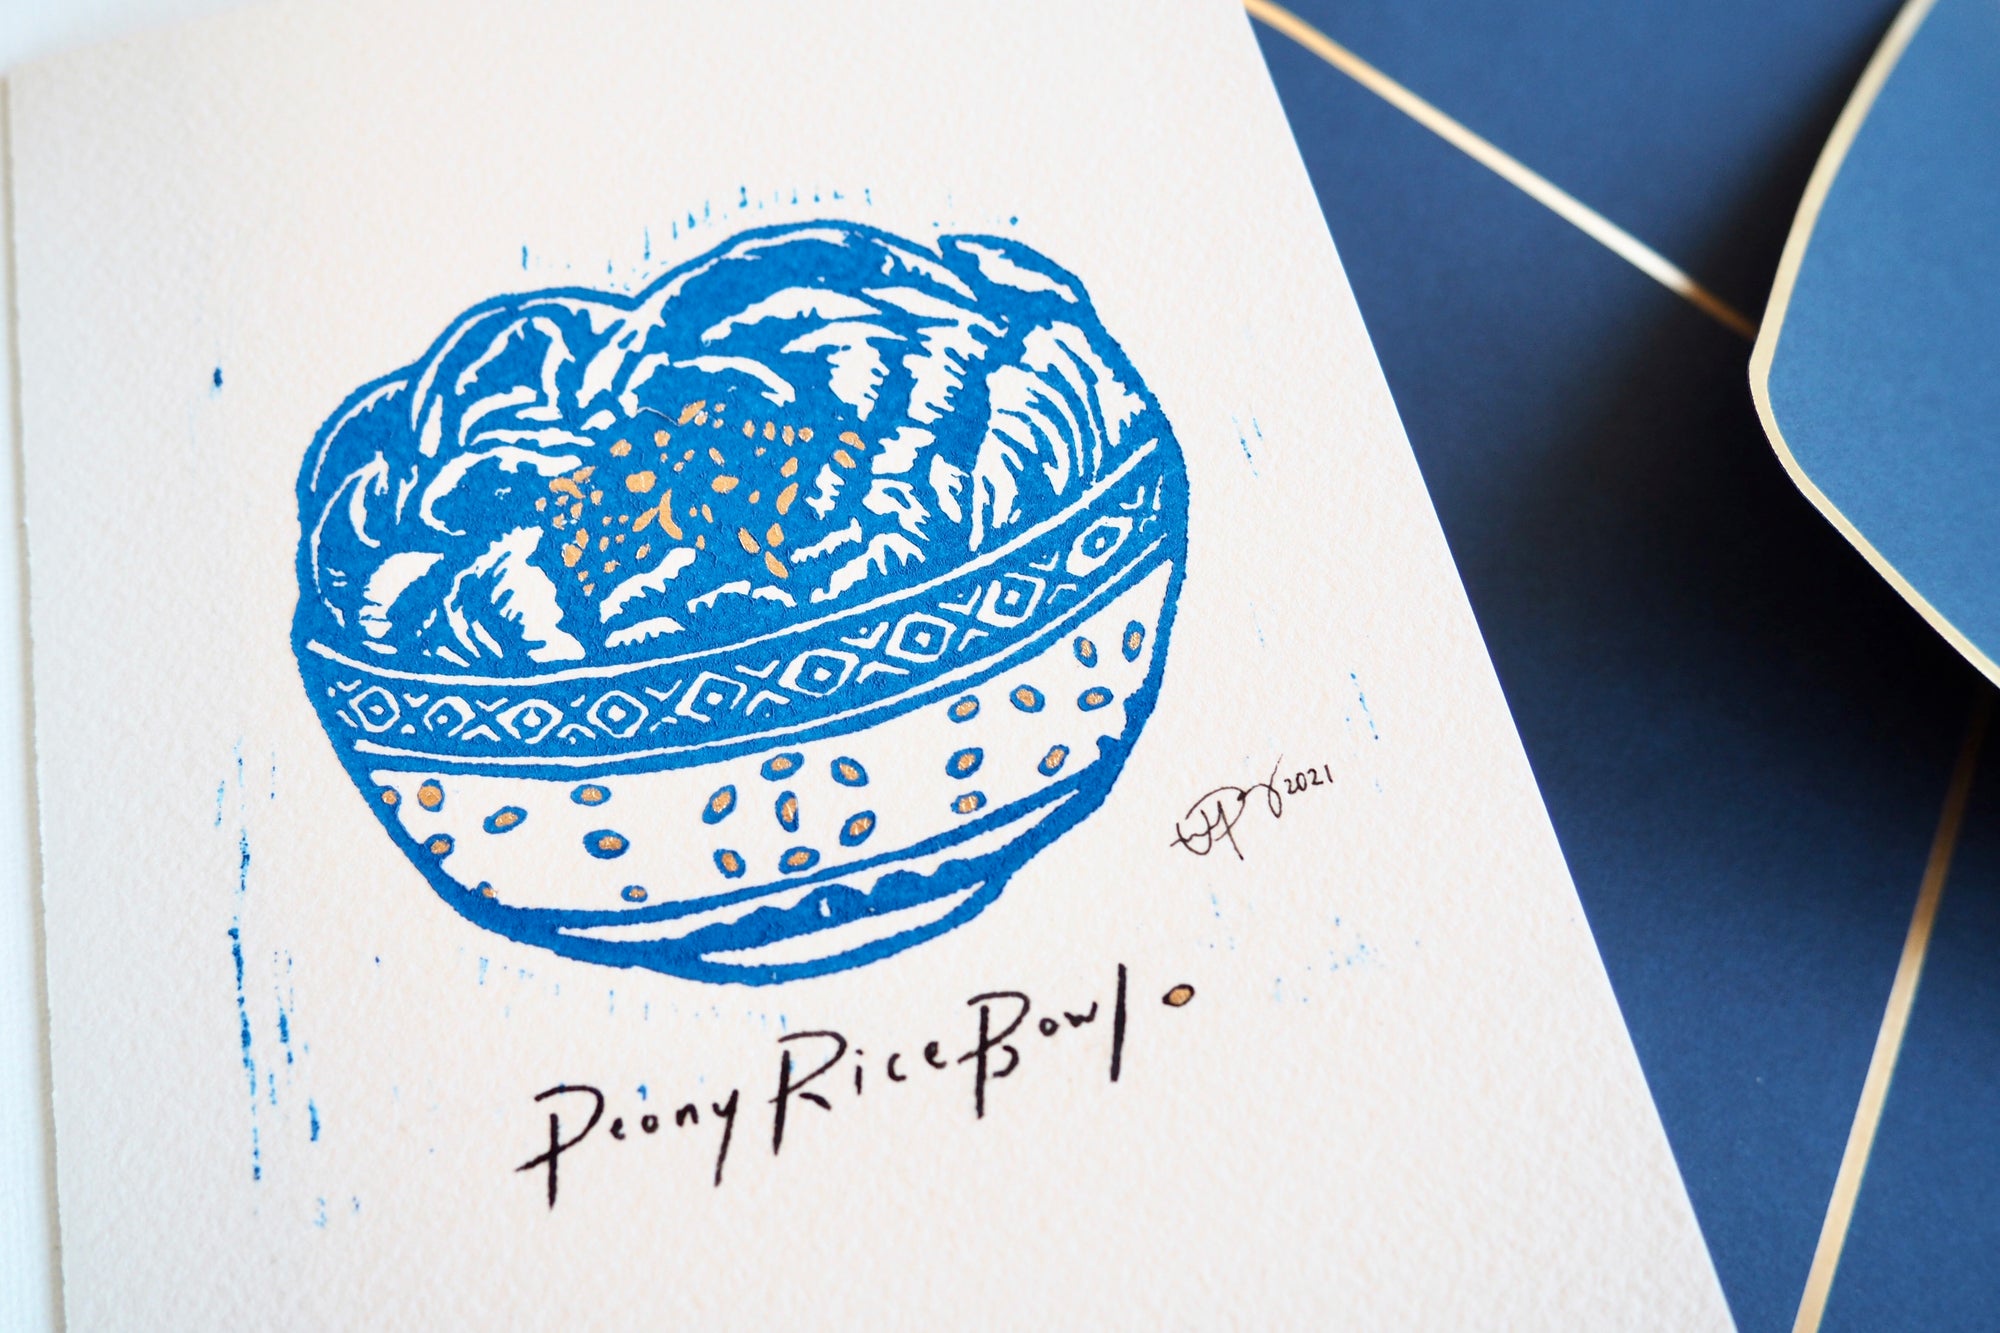 2021
Peony Rice Bowl